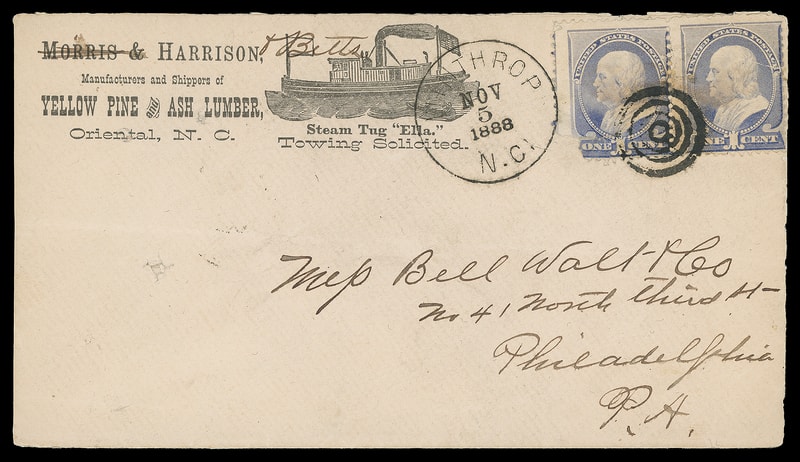 MORRIS & HARRISON, & Betts
Manufacturers and Shippers of
YELLOW PINE and ASH LUMBER,
Oriental, N. C.
Steam Tug "Ella."
Towing Solicited.
THROP
NOV
5
1888
N.C.
UNITED STATES POSTAGE
ONE CENT
UNITED STATES POSTAGE
ONE CENT
Mess Bell Walt & Co
No 41 North third st
Philadelphia
P.A.